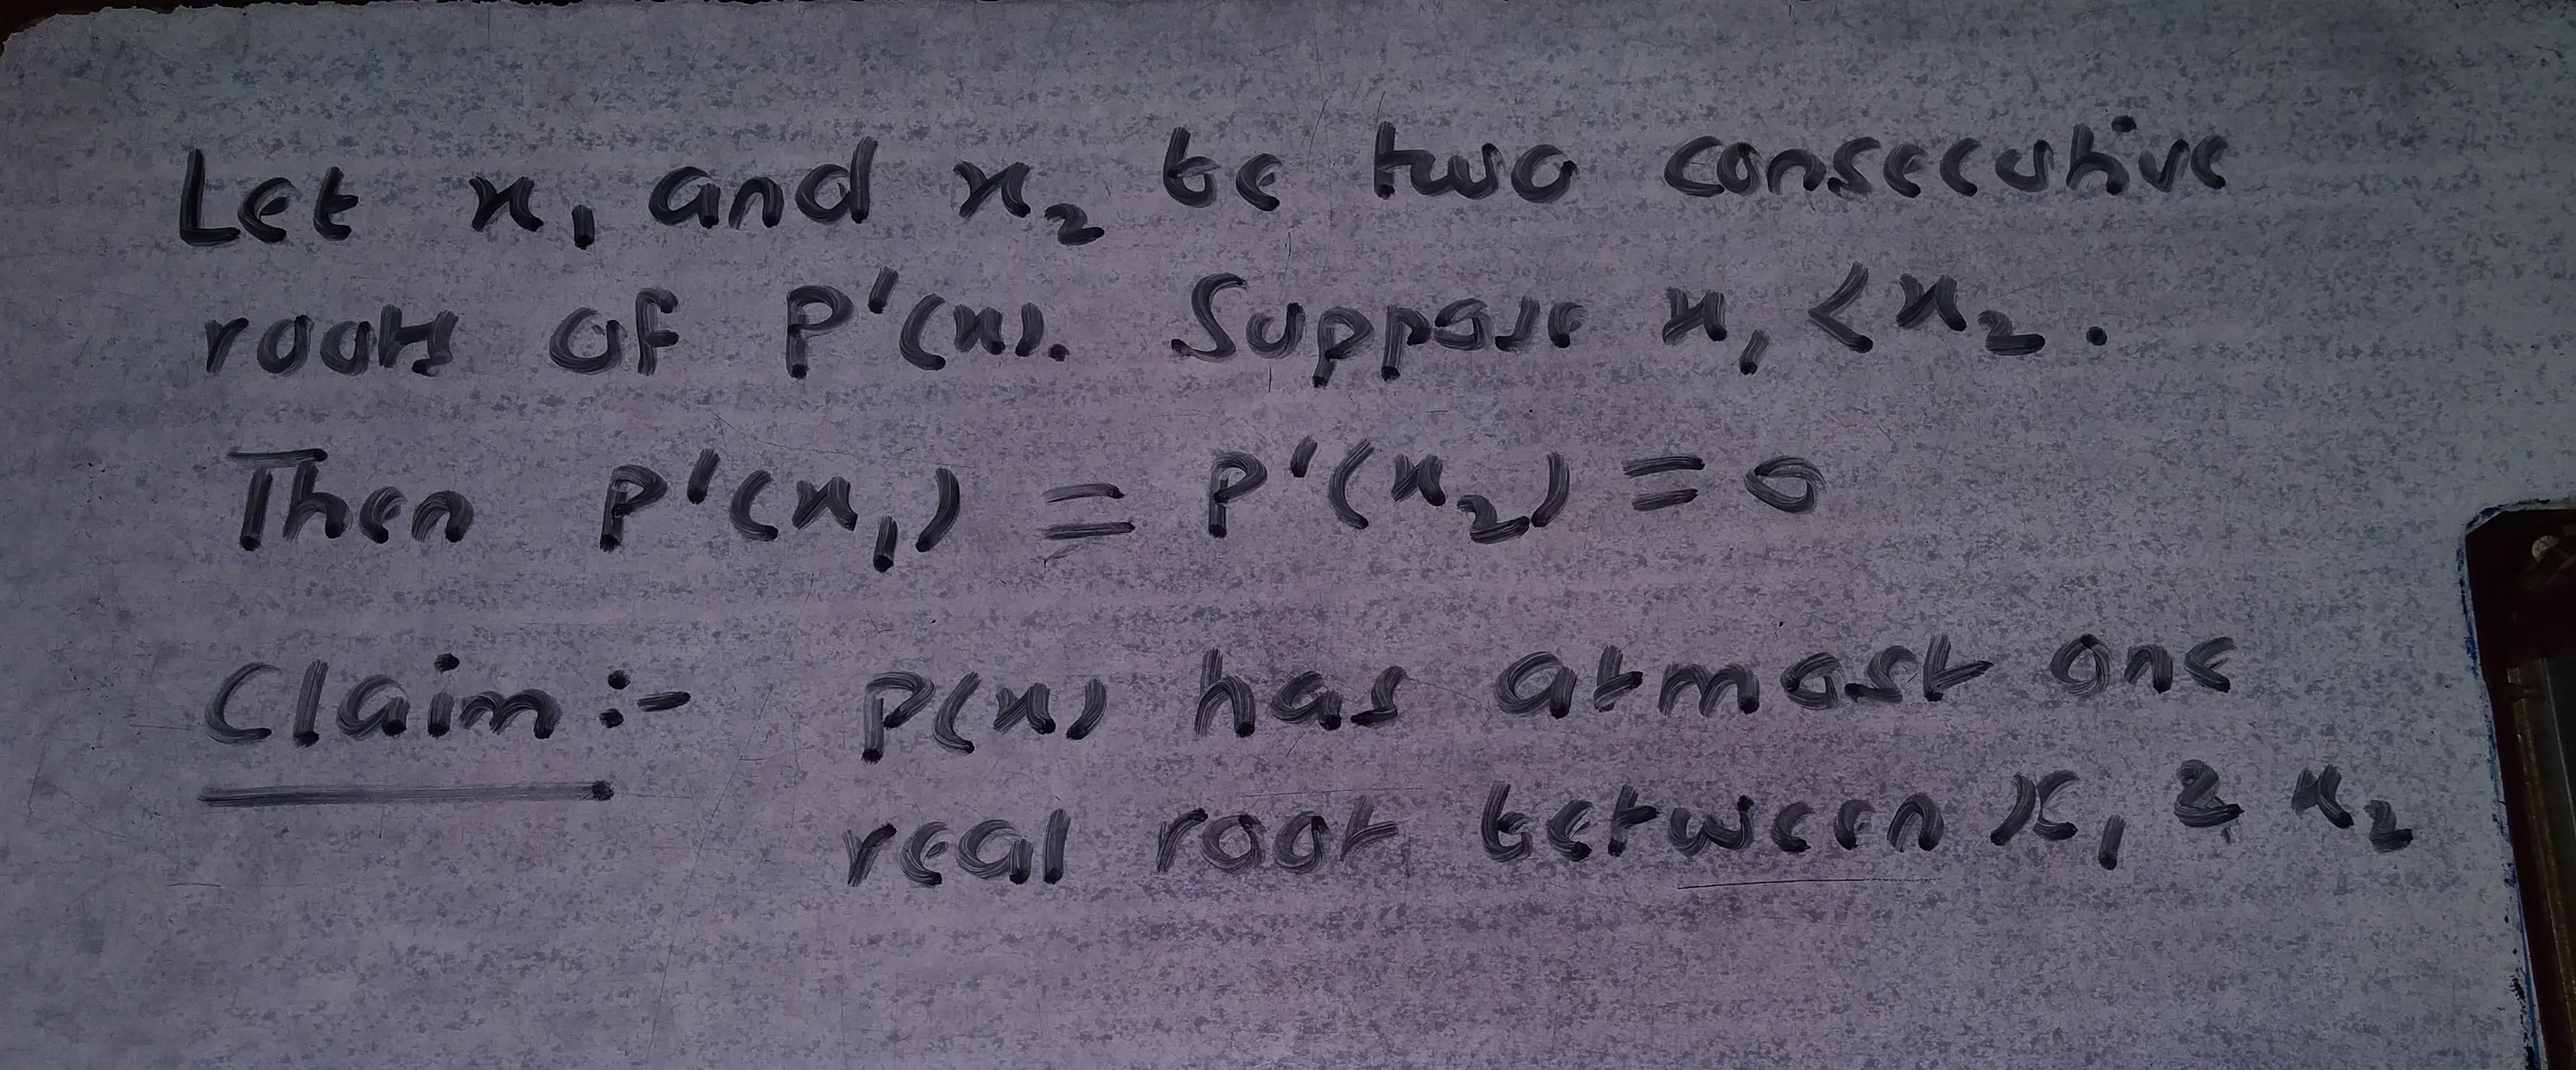 Let x₁ and x₂ be two consecutive
roots of P'(x). Suppose x₁ < x₂.
Then P'(x₁) = P'(x₂) = 0
Claim :- P(x) has atmost one
real root between x₁ & x₂